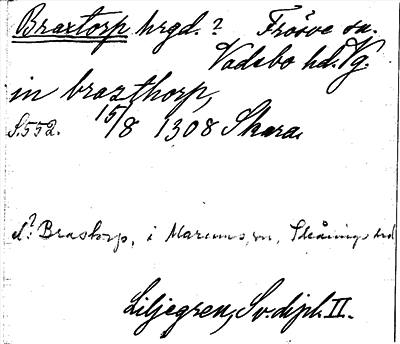 Braxtorp hrgd.? Frösve sn.
Vadsbo hd. Vg.
in braxthorp,
S.552. 15/8 1308 Skara.
el? Brastorp, i Marums sn, Skånings hrd
Liljegren, Sv. dipl. II.